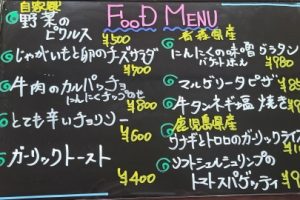 FOOD MENU
自家製
野菜の
ピクルス
¥500
じゃがいもと卵のチーズサラダ
¥500
牛肉のカルパッチョ
にんにくチップのせ
¥800
とても辛いチョリソー
¥600
ガーリックトースト
¥400
青森県産
にんにくの味噌グラタン
バケット添え
マルゲリータピザ
牛タンネギ塩焼き
鹿児島県産
ウナギとトロロのガーリックライス
ソフトシェルシュリンプの
トマトスパゲッティ